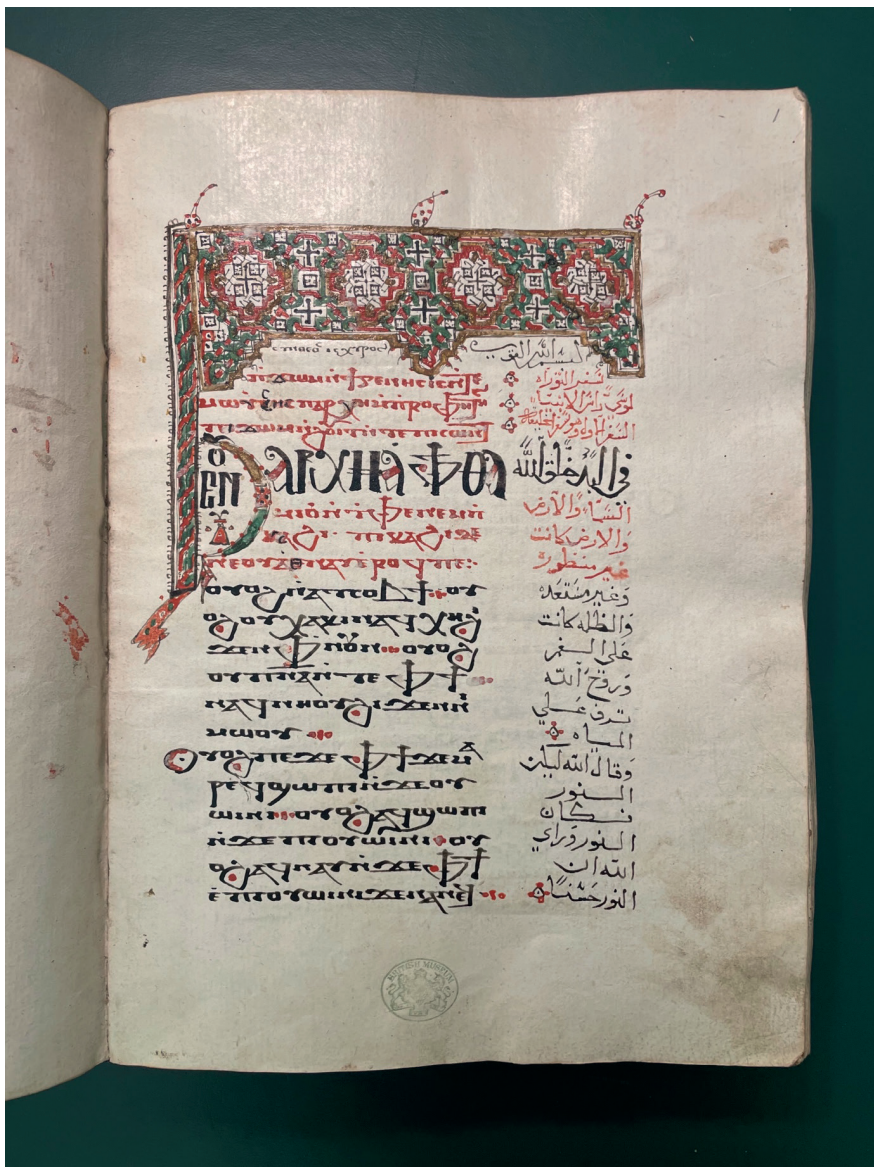 ⲓⲥⲭⲩⲣⲟⲥ
ⲙⲱⲩⲥⲏⲥ ⲡⲁⲣⲭⲏⲡⲣⲟⲫⲏⲧⲏⲥ
ϧⲉⲛ ⲁⲣⲭⲏ ⲁ ⲫϯ ⲑⲁ
ⲙⲓⲟ ⲛ̀ⲧⲫⲉ ⲛⲉⲙ ⲡ̀
ⲕⲁϩⲓ ⲡⲓⲕⲁϩⲓ ⲇⲉ
ⲛⲉ ⲟⲩⲁⲑⲛⲁⲩ ⲉⲣⲟϥ ⲡⲉ:
ⲟⲩⲟϩ ⲛ̀ⲁⲧⲥⲟⲃϯ ⲟⲩ
ⲟϩ ⲟⲩⲭⲁⲕⲓ ⲛⲁϥⲭⲏ ϩⲓ
ϫⲉⲛ ⲫⲛⲟⲩⲛ ⲟⲩⲟϩ
ⲟⲩⲡⲛⲁ ⲛ̀ⲧⲉ ⲫϯ
ⲛⲁϥⲛⲏⲟⲩ ϩⲓϫⲉⲛ ⲛⲓ
ⲙⲱⲟⲩ
ⲟⲩⲟϩ ⲡⲉϫⲉ ⲫϯ ϫⲉ ⲙⲁ
ⲣⲉϥϣⲱⲡⲓ ⲛ̀ϫⲉ ⲟⲩ
ⲱⲓⲛⲓ ⲟⲩⲟϩ ⲁϥϣⲱⲡⲓ
ⲛ̀ϫⲉ ⲡⲓⲟⲩⲱⲓⲛⲓ ⲟⲩ
ⲟϩ ⲁϥⲛⲁⲩ ⲛ̀ϫⲉ ⲫϯ
ⲉ̀ⲡⲓⲟⲩⲱⲓⲛⲓ ϫⲉ ⲛⲁⲛⲉϥ
بسم الله القوي
سفر التوراه
لموسى راس الانبيا
في البدء خلق الله
السما والارض
والارض كانت
غير منظوره
وغير مستعده
والظلمه كانت
على الغمر
وروح الله
ترف على
المياه
وقال الله ليكن
النور
فكان
النور وراي
الله ان
النور حسنا
1
BRITISH MUSEUM